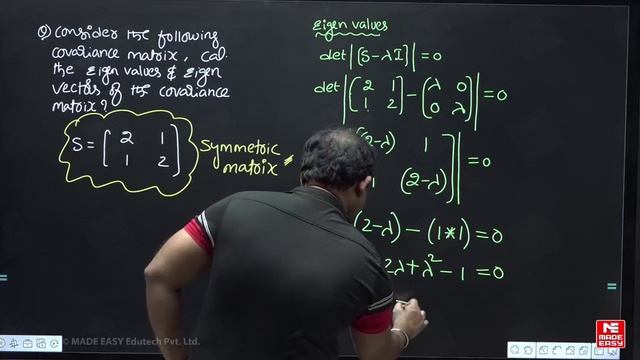 Q) Consider the following
covariance matrix, cal.
the Eigen values & Eigen
vectors of the covariance
matrix?
S = [ 2 1
1 2 ]
Symmetric
matrix
Eigen values
det |[S-λI]| = 0
det |[ 2 1
1 2 ] - ( λ 0
0 λ )| = 0
(2-λ) 1
(2-λ) ]| = 0
(2-λ) - (1*1) = 0
2λ + λ² - 1 = 0
© MADE EASY Edutech Pvt. Ltd.
ME
MADE
EASY